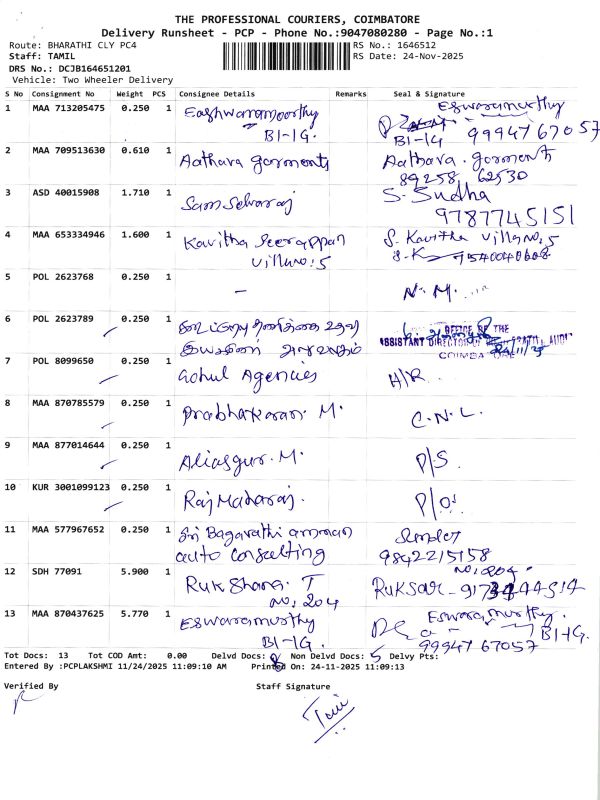 THE PROFESSIONAL COURIERS, COIMBATORE
Delivery Runsheet - PCP - Phone No.:9047080280 - Page No.:1
Route: BHARATHI CLY PC4
RS No.: 1646512
Staff: TAMIL
RS Date: 24-Nov-2025
DRS No.: DCJB164651201
Vehicle: Two Wheeler Delivery
S No Consignment No Weight PCS Consignee Details Remarks Seal & Signature
1 MAA 713205475 0.250 1 Eashwaramoorthy Eswaramurthy
B1-1G. B1-1G 99947 67057
2 MAA 709513630 0.610 1 Aathava garments Aathava. garments
89258 62530
3 ASD 40015908 1.710 1 Sam Selvaraj S. Sudha
9787745151
4 MAA 653334946 1.600 1 Kavitha Veerappan S. Kavitha Villa no: 5
Villa no: 5 S.K
5 POL 2623768 0.250 1 - N.M.
6 POL 2623789 0.250 1 OFFICE OF THE
ASSISTANT DIRECTOR AUDIT
COIMBATORE 24/11/25
7 POL 8099650 0.250 1 Gohul Agencies H/R.
8 MAA 870785579 0.250 1 Prabhakaran. M. C.N.L.
9 MAA 877014644 0.250 1 Aliasgur. M. P/S
10 KUR 3001099123 0.250 1 Raj Maharaj. P/O
11 MAA 577967652 0.250 1 Sri Bagavathi amman
auto Consulting 9842215158
12 SDH 77091 5.900 1 Ruk Shana. T no: 204.
no: 204 Ruksar
13 MAA 870437625 5.770 1 Eswaramurthy Eswaramurthy.
B1-1G. B1-1G.
99947 67057
Tot Docs: 13 Tot COD Amt: 0.00 Delvd Docs: 8 Non Delvd Docs: 5 Delvy Pts:
Entered By :PCPLAKSHMI 11/24/2025 11:09:10 AM Printed On: 24-11-2025 11:09:13
Verified By Staff Signature